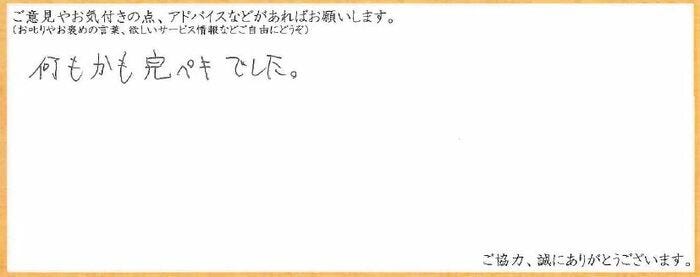 ご意見やお気付きの点、アドバイスなどがあればお願いします。
(お叱りやお褒めの言葉、欲しいサービス情報などご自由にどうぞ)
何もかも完ペキでした。
ご協力、誠にありがとうございます。